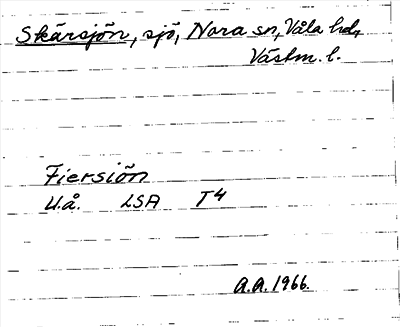 Skärsjön, sjö, Nora sn, Våla hd,
Västm. l.
Fiersiön
U.å. LSA T4
A.A. 1966.